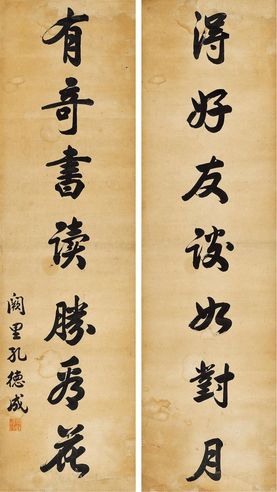 得好友談如對月
有奇書讀勝看花
闕里孔德成